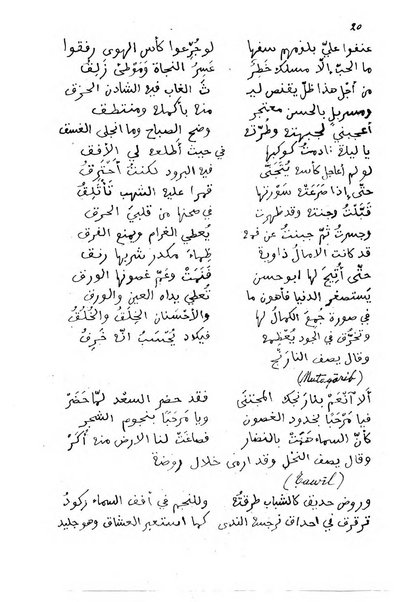 20
عنفوا عليّ بلومهم سفها لو جُرِّعوا كأس الهوى رفقوا
ما الحبّ إلّا مسلك خَطِرٌ عَسِرُ النجاة وَمَوْطِئٌ زَلِقُ
من أجل هذا ظلّ يقنص ليـ ـثَ الغاب فيه الشادن الخَرِقُ
ومسربل بالحسن معتجر منه بأكمله ومنتطق
أعجبنى لجبهته وطُرّته وضح الصباح وما انجلى الغسق
يا ليلة نادمتُ كوكبها في حيث أطلعه لي الأفق
لو لم كأسه فيه البرود لكنتُ أَحْتَرِقُ
حتّى إذا صَرَعَتْهُ سَوْرتها قمرا عليه الشهب تَأْتَلِقُ
قَبَّلْتُ وجنته وقد ظهرت في صحنها من قلبيَ الحرق
وجسرتُ ثمّ جبنتُ عن فمه يُعطي الغرام ويمنع الفرق
قد كانت الامال ذاوية ظِماءً مكدر شربها رنق
حتّى أُتيحَ لها ابو حسن فَنَمَتْ وعَمَّ غصونها الورق
يَستصغر الدنيا فأهون ما تُعطي يداه العين والورق
في صورة جمع الكمال لها والأَحْسَنان الخِلْقُ والخُلُقُ
وتخرّق في الجود يُعْظِمه فيكاد يُحْسَبُ انّه خَرِقُ
وقال يصف النارنج
(Mutaqârib)
ألا آنْعَمْ بنارنجك المجتنَى فقد حضر السعد لمّا حَضَرْ
فيا مَرْحَبًا بخدود الغصون ويا مَرْحَبًا بنجوم الشجر
كأنّ السماء هَمَتْ بالنضار فصاغتْ لنا الارض منه أُكَرْ
وقال يصف النخل وقد ارى خلال روضة
(Tawîl)
وروض حديق كالشباب طرقتُه وللنجم في أفق السماء ركودُ
ترقرق في احداق نرجسه الندى كما استعبر العشاق وهو جليد